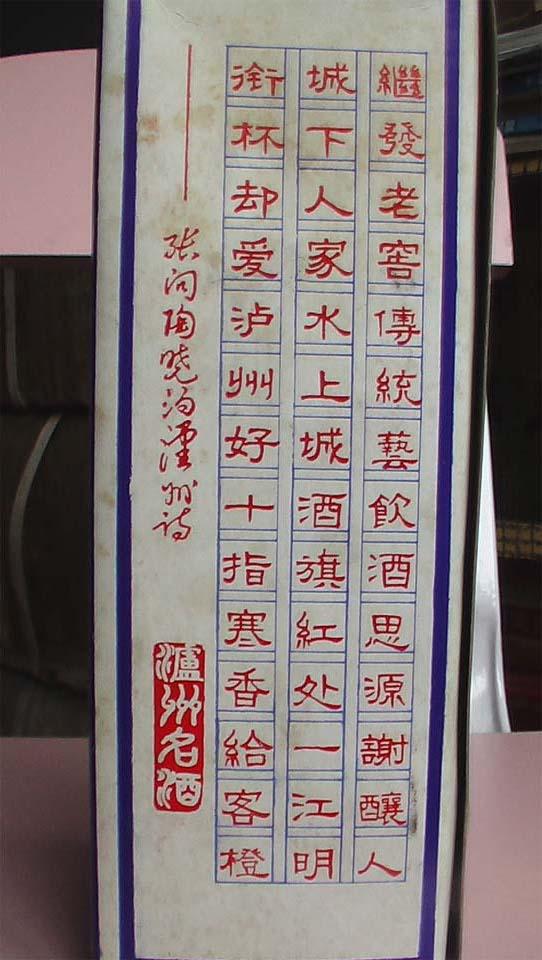 繼發老窖傳統藝飲酒思源謝釀人
城下人家水上城酒旗紅处一江明
衔杯却爱泸州好十指寒香給客橙
张问陶晓泊瀘州诗
瀘州名酒